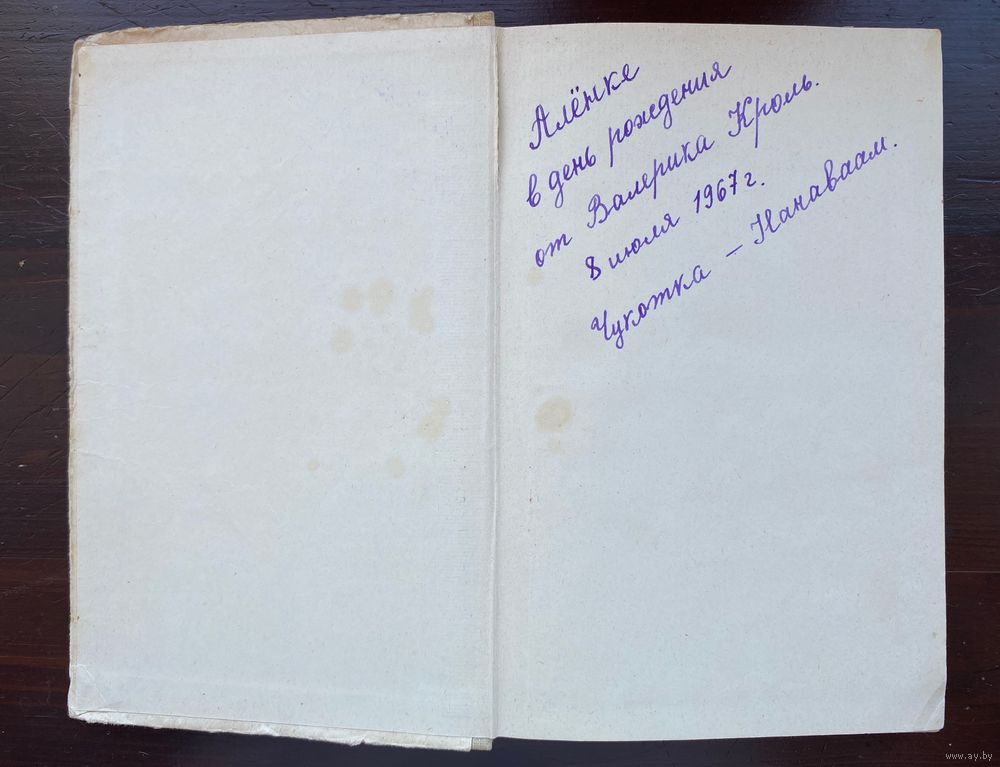 Алёнке
в день рождения
от Валерика Кроль.
8 июля 1967 г.
Чукотка – Канаваам.
www.ay.by